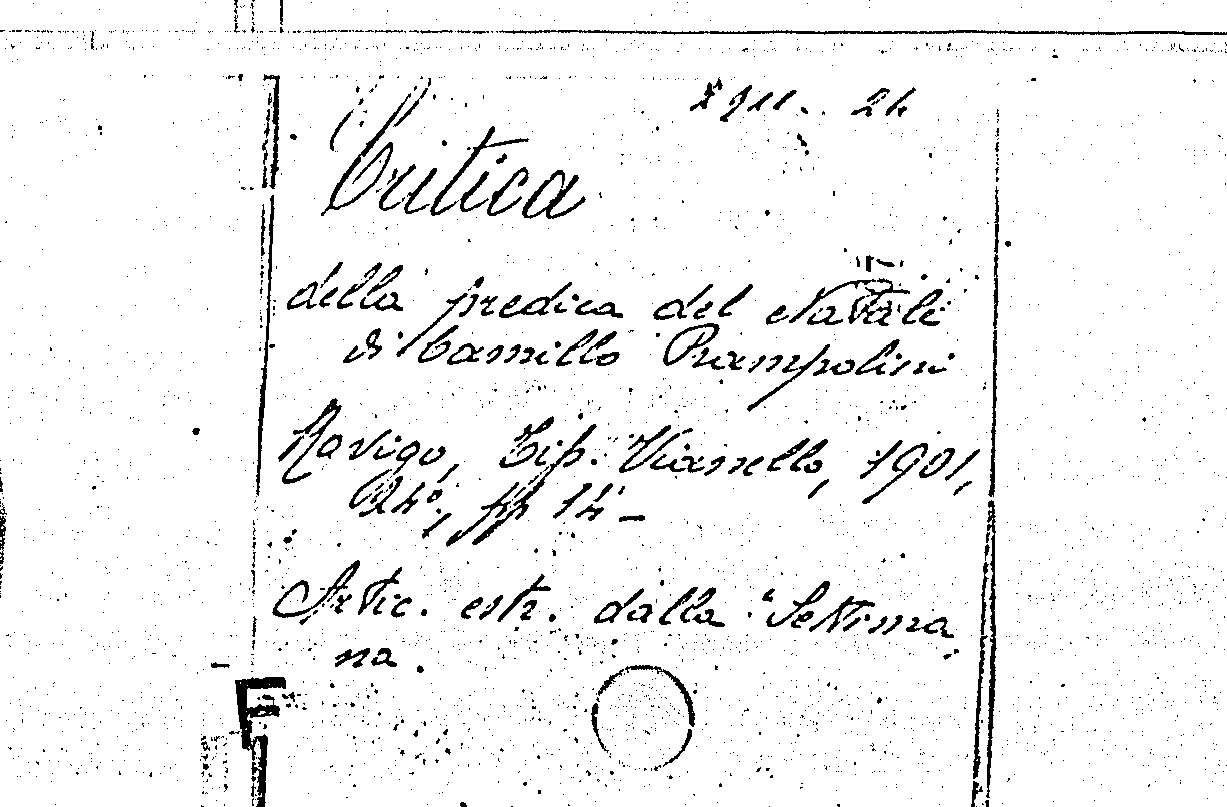 911. 24
Critica
della predica del Natale
di Camillo Prampolini
Rovigo, Tip. Vianello, 1901,
24°, pp 14 -
Artic. estr. dalla "Settima
na.